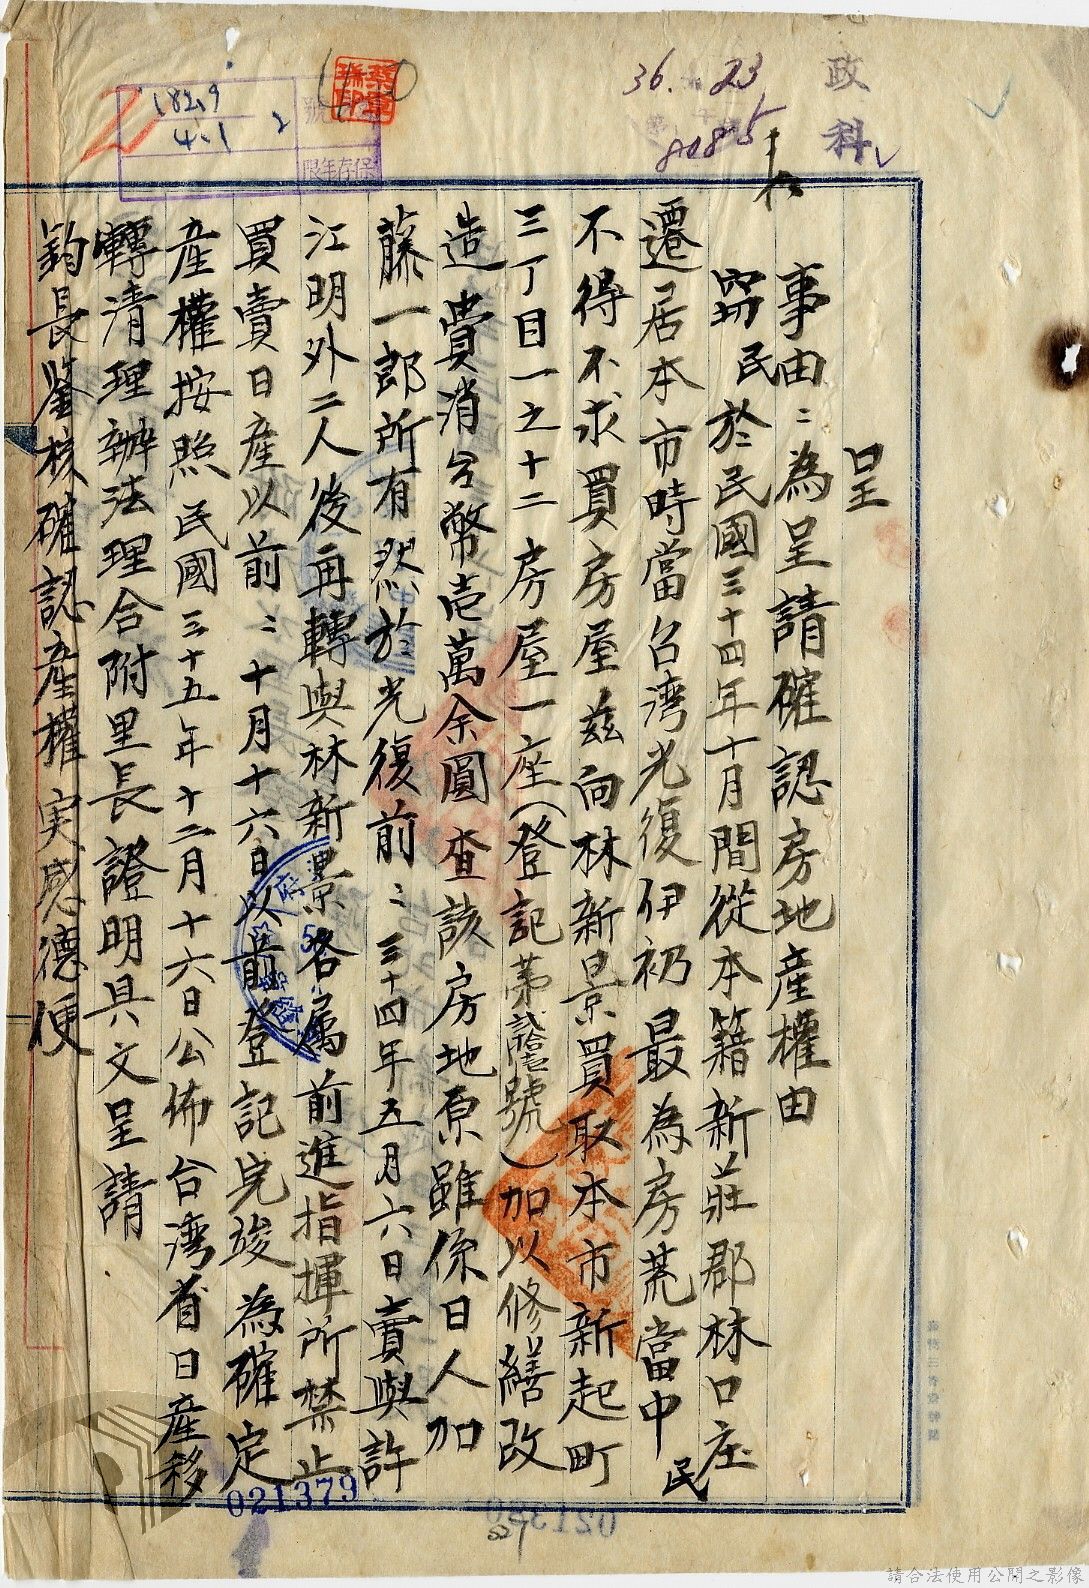 政科
36. 23
8085
1829
4.1
2
號
保存年限
呈
事由:為呈請確認房地產權由
竊民於民國三十四年十月間從本籍新莊郡林口庄
遷居本市時當台湾光復伊初最為房荒當中民
不得不求買房屋茲向林新景買取本市新起町
三丁目一之十二房屋一座(登記第貳拾壱號)加以修繕改
造費消台幣壱萬余圓查該房地原雖係日人加
藤一郎所有然於光復前:三十四年五月六日賣與許
江明外二人後再轉與林新景各屬前進指揮所禁止
買賣日產以前:十月十六日以前登記完竣為確定
產權按照民國三十五年十二月十六日公佈台湾省日產移
轉清理辦法理合附里長證明具文呈請
鈞長鑒核確認產權实感德便
021379
021380
請合法使用公開之影像